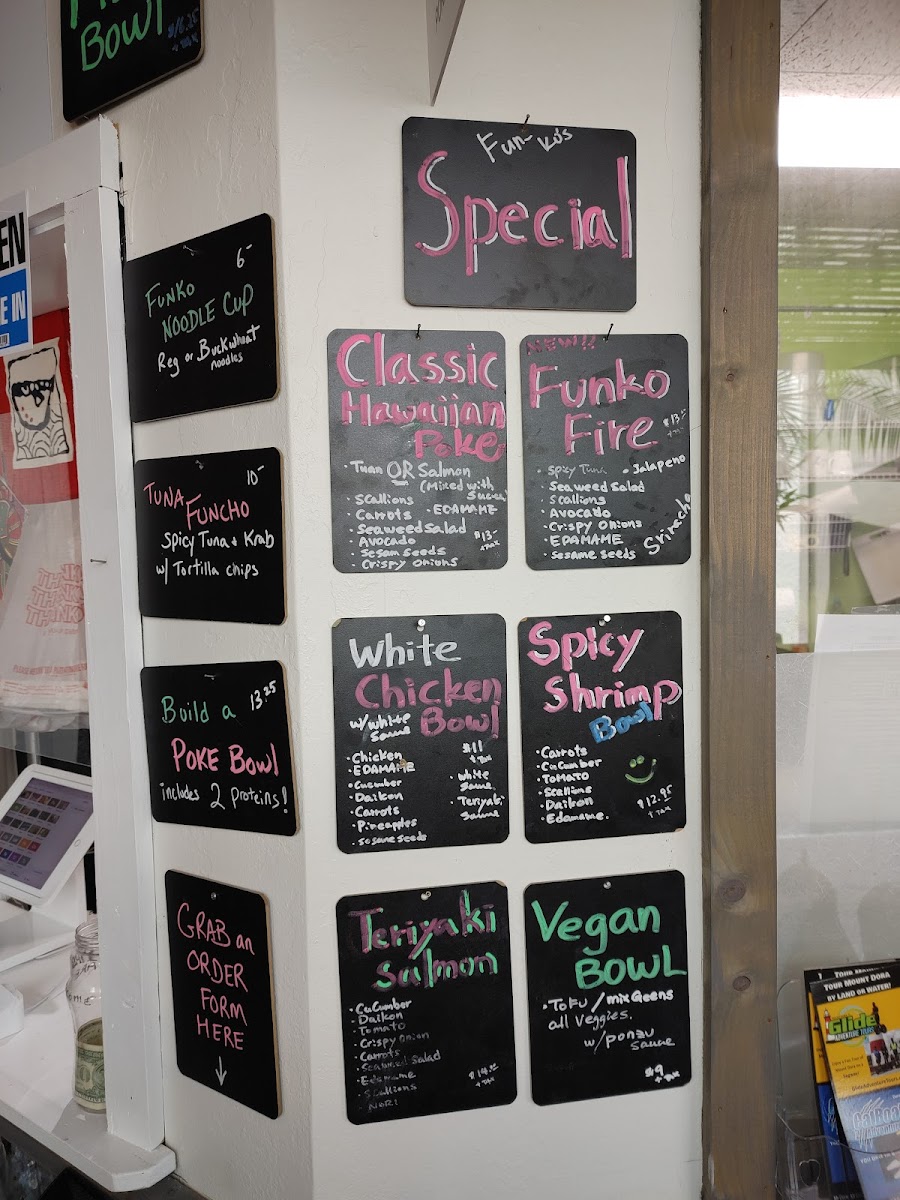 Bowl
+ tax
EN
E IN
FUNKO
NOODLE CUP
6-
Reg or Buckwheat
noodles
TUNA
FUNCHO
10-
Spicy Tuna + Krab
w/ Tortilla chips
Build a
13.25
POKE BOWl
includes 2 proteins!
GRAB an
ORDER
FORM
HERE
THANK
THANK
THANK
Fun-Ko's
Special
Classic
Hawaiian
Poke
· Tuan OR Salmon
(Mixed with
· Scallions
· Carrots · EDAMAME
· Seaweed Salad
· Avocado
· Sesam seeds
· Crispy onions
+ tax
NEW!!
Funko
Fire
· Spicy Tuna · Jalapeno
· Seaweed Salad
· Scallions
· Avocado
· Crispy Onions
· EDAMAME
· Sesame seeds
Sriracha
White
Chicken
Bowl
w/white
Sause
· Chicken
· EDAMAME
· Cucumber
· Daikon
· Carrots
· Pineapples
· Sesame seeds
$11
+ Tax
· white
Sause
· Teriyaki
Sause
Spicy
Shrimp
Bowl
· Carrots
· Cucumber
· TOMATO
· Scallions
· Daikon
· Edamame.
$12.95
+ Tax
Teriyaki
Salmon
· Cucumber
· Daikon
· Tomato
· Crispy Onion
· Carrots
· Seaweed Salad
· Edamame
· Scallions
· NORI
+ tax
Vegan
BOWL
· TOFU / mix Geens
all Veggies.
w/ ponzu
Sause
$9
+ Tax
TOUR MOUNT DORA
BY LAND OR WATER!
Glide
ADVENTURE TOURS